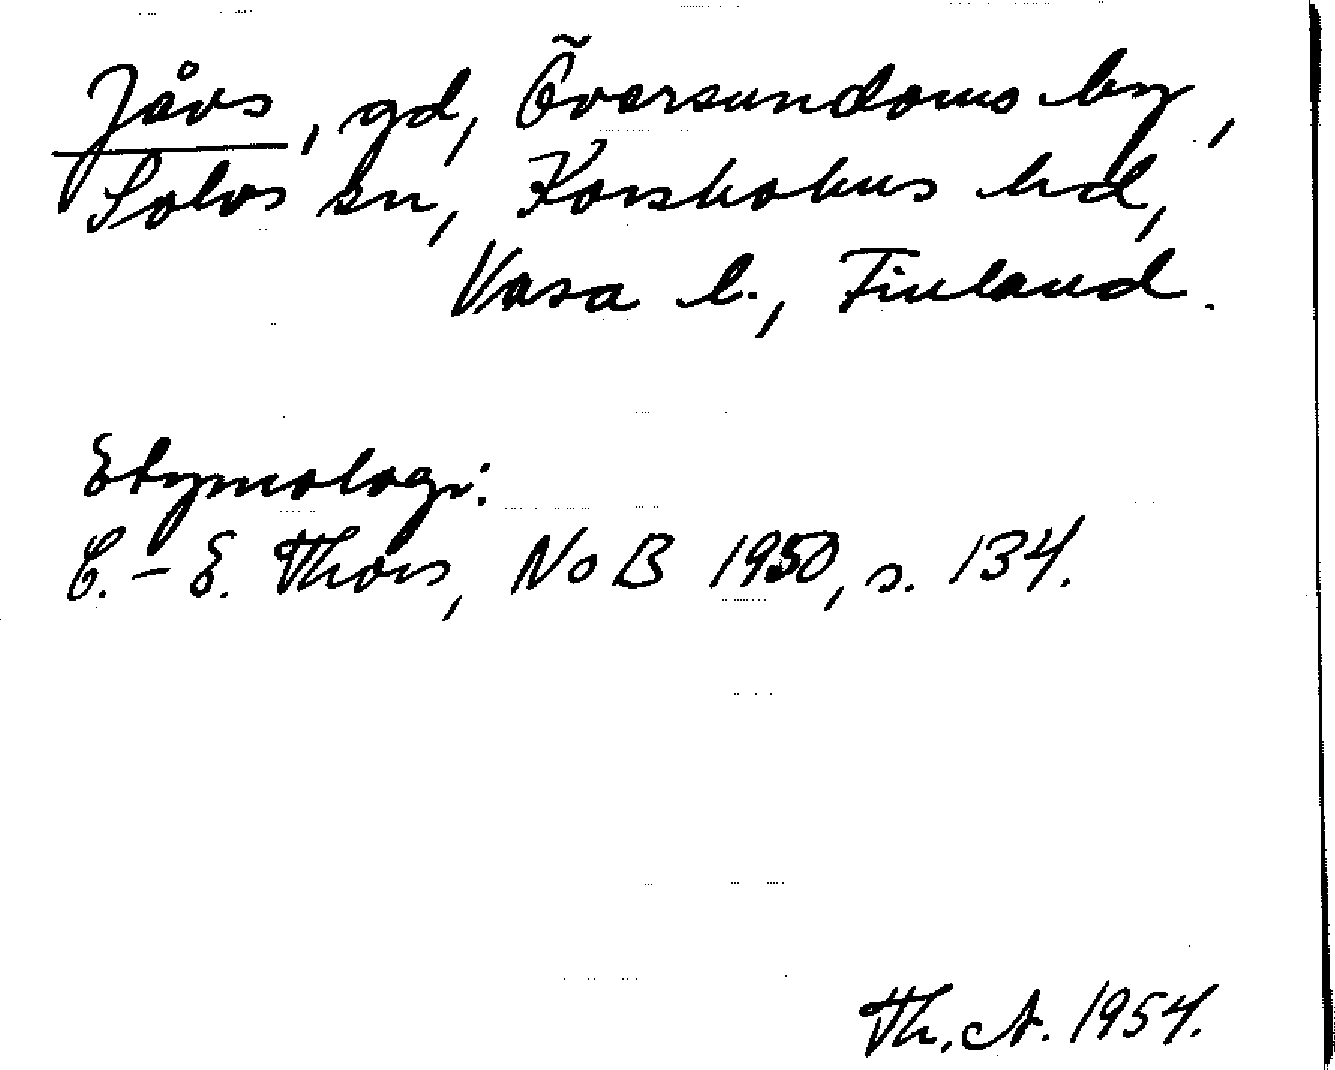 Jåvs, gd, Översundoms by,
Solvs sn, Korsholms hd,
Vasa l., Finland.
Etymologi:
C.-E. Thors, NoB 1950, s. 134.
Th. A. 1954.